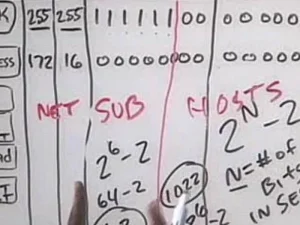 K) 255 255 11111100 00000
ESS 172 16 00000000 00000
NET SUB HOSTS
2^6-2 2^N-2
64-2 1022 N=# of
Bits
IN SE